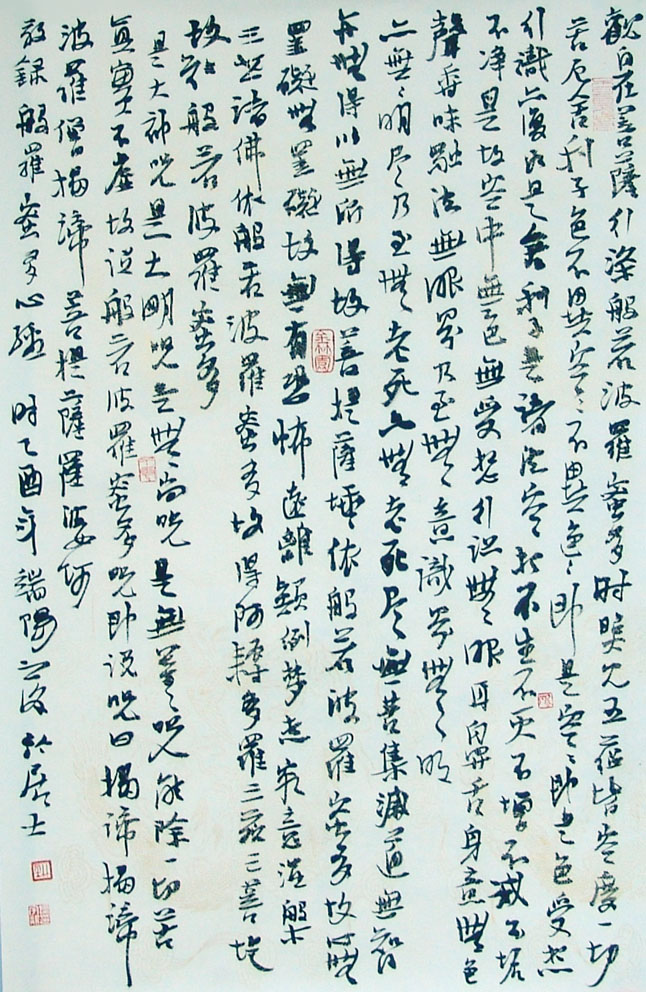 觀自在菩薩行深般若波羅蜜多時照見五蘊皆空度一切
苦厄舍利子色不異空〻不異色〻即是空〻即是色受想
行識亦復如是舍利子是諸法空相不生不灭不增不減不垢
不净是故空中無色無受想行識無〻眼耳鼻舌身意無色
聲香味觸法無眼界乃至無〻意識界無〻明
亦無〻明尽〻乃至無〻老死亦無老死尽〻無苦集滅道無智
亦無得以無所得故菩提薩埵依般若波羅蜜多故心無
罣礙無罣礙故無有恐怖遠離顛倒夢想究竟涅槃
三世諸佛依般若波羅蜜多故得阿耨多羅三藐三菩提
故知般若波羅蜜多
是大神咒是大明咒是無〻上咒是無等〻咒能除一切苦
真實不虛故說般若波羅蜜多咒即說咒曰揭諦揭諦
波羅僧揭諦菩提薩羅婆訶
敬錄般羅蜜多心經 時乙酉年端陽之後 居士